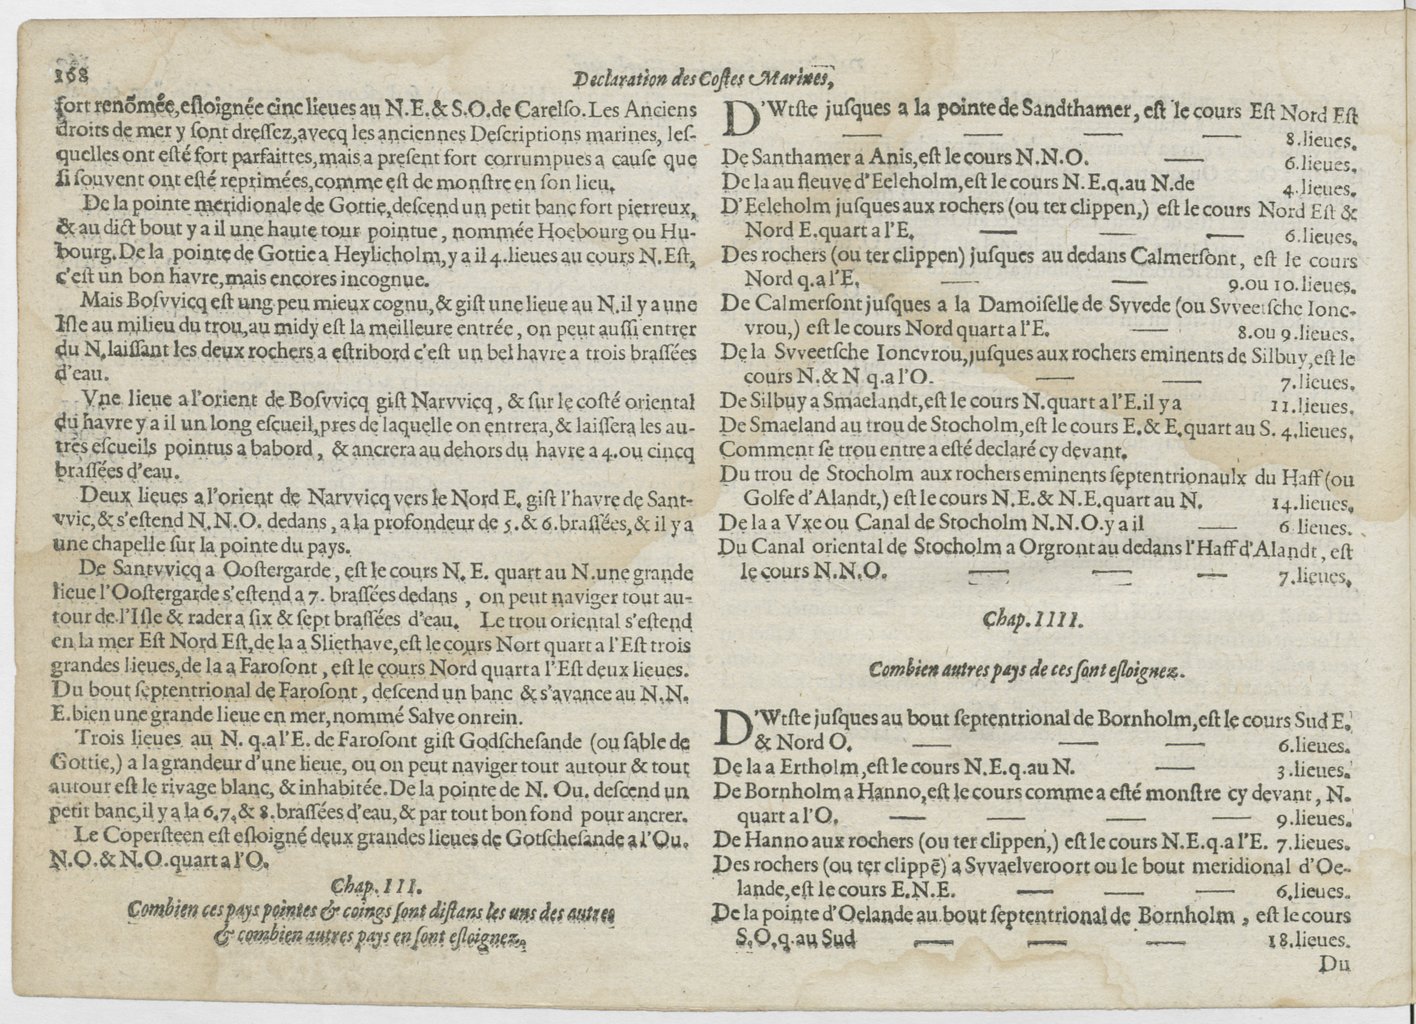 168
Declaration des Costes Marines,
fort renõmée, esloignée cinc lieues au N.E. & S.O. de Carelso. Les Anciens
droits de mer y sont dressez, avecq les anciennes Descriptions marines, les-
quelles ont esté fort parfaittes, mais a present fort corrumpues a cause que
si souvent ont esté reprimées, comme est de monstre en son lieu.
De la pointe meridionale de Gottie, descend un petit banc fort pierreux,
& au dict bout y a il une haute tour pointue, nommée Hoebourg ou Hu-
bourg. De la pointe de Gottie a Heylicholm, y a il 4. lieues au cours N. Est,
c'est un bon havre, mais encores incognue.
Mais Bosvvicq est ung peu mieux cognu, & gist une lieue au N. il y a une
Isle au milieu du trou, au midy est la meilleure entrée, on peut aussi entrer
du N. laissant les deux rochers a estribord c'est un bel havre a trois brassées
d'eau.
Vne lieue a l'orient de Bosvvicq gist Narvvicq, & sur le costé oriental
du havre y a il un long escueil, pres de laquelle on entrera, & laissera les au-
tres escueils pointus a babord, & ancrera au dehors du havre a 4. ou cincq
brassées d'eau.
Deux lieues a l'orient de Narvvicq vers le Nord E. gist l'havre de Sant-
vvic, & s'estend N.N.O. dedans, a la profondeur de 5. & 6. brassées, & il y a
une chapelle sur la pointe du pays.
De Santvvicq a Oostergarde, est le cours N. E. quart au N. une grande
lieue l'Oostergarde s'estend a 7. brassées dedans, on peut naviger tout au-
tour de l'Isle & rader a six & sept brassées d'eau. Le trou oriental s'estend
en la mer Est Nord Est, de la a Sliethave, est le cours Nort quart a l'Est trois
grandes lieues, de la a Farosont, est le cours Nord quart a l'Est deux lieues.
Du bout septentrional de Farosont, descend un banc & s'avance au N.N.
E. bien une grande lieue en mer, nommé Salve onrein.
Trois lieues au N. q. a l'E. de Farosont gist Godschesande (ou sable de
Gottie,) a la grandeur d'une lieue, ou on peut naviger tout autour & tout
autour est le rivage blanc, & inhabitée. De la pointe de N. Ou. descend un
petit banc, il y a la 6.7. & 8. brassées d'eau, & par tout bon fond pour ancrer.
Le Copersteen est esloigné deux grandes lieues de Gotschesande a l'Ou.
N.O. & N.O. quart a l'O.
Chap. III.
Combien ces pays pointes & coings sont distans les uns des autres
& combien autres pays en sont esloignez.
D'Wtste jusques a la pointe de Sandthamer, est le cours Est Nord Est
— — — — 8. lieues.
De Santhamer a Anis, est le cours N.N.O. — 6. lieues.
De la au fleuve d'Eeleholm, est le cours N.E. q. au N. de 4. lieues.
D'Eeleholm jusques aux rochers (ou ter clippen,) est le cours Nord Est &
Nord E. quart a l'E. — — — 6. lieues.
Des rochers (ou ter clippen) jusques au dedans Calmersont, est le cours
Nord q. a l'E. — — 9. ou 10. lieues.
De Calmersont jusques a la Damoiselle de Svvede (ou Svveetsche Ionc-
vrou,) est le cours Nord quart a l'E. — 8. ou 9. lieues.
De la Svveetsche Ioncvrou, jusques aux rochers eminents de Silbuy, est le
cours N. & N q. a l'O. — — 7. lieues.
De Silbuy a Smaelandt, est le cours N. quart a l'E. il y a 11. lieues.
De Smaeland au trou de Stocholm, est le cours E. & E. quart au S. 4. lieues.
Comment se trou entre a esté declaré cy devant.
Du trou de Stocholm aux rochers eminents septentrionaulx du Haff (ou
Golfe d'Alandt,) est le cours N.E. & N.E. quart au N. 14. lieues.
De la a Vxe ou Canal de Stocholm N.N.O. y a il — 6 lieues.
Du Canal oriental de Stocholm a Orgront au dedans l'Haff d'Alandt, est
le cours N.N.O. — — — 7. lieues.
Chap. IIII.
Combien autres pays de ces sont esloignez.
D'Wtste jusques au bout septentrional de Bornholm, est le cours Sud E.
& Nord O. — — — 6. lieues.
De la a Ertholm, est le cours N.E. q. au N. — 3. lieues.
De Bornholm a Hanno, est le cours comme a esté monstre cy devant, N.
quart a l'O. — — — — 9. lieues.
De Hanno aux rochers (ou ter clippen,) est le cours N.E. q. a l'E. 7. lieues.
Des rochers (ou ter clippē) a Svvaelveroort ou le bout meridional d'Oe-
lande, est le cours E.N.E. — — — 6. lieues.
De la pointe d'Oelande au bout septentrional de Bornholm, est le cours
S.O. q. au Sud — — — 18. lieues.
Du